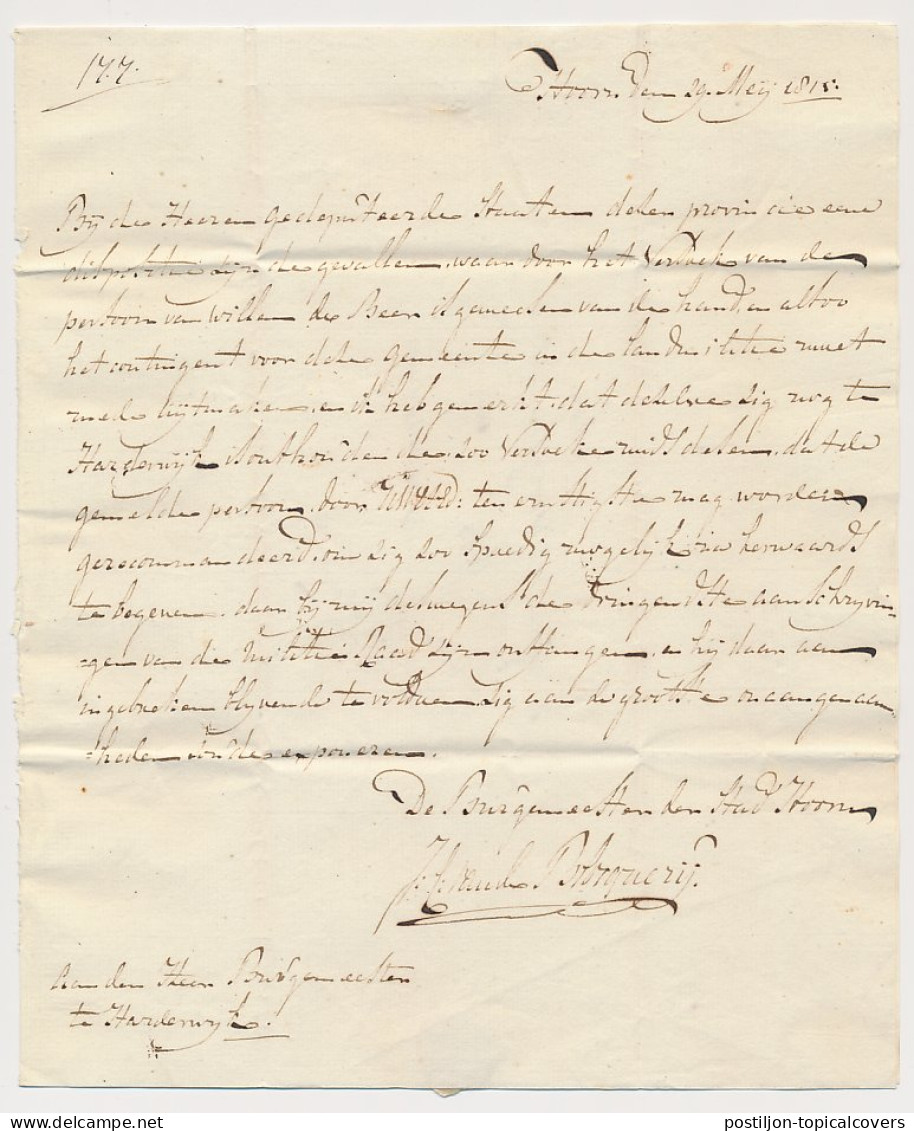 177.
Hoorn den 29 Meij 1815.
Bij de Heeren gedeputeerde Staaten dezer provincie eene
dispositie zijnde gevallen, waar door het Verzoek van de
persoon van Willem de Beer is geweezen van de hand, en alzoo
het contingent voor deze Gemeente in de landmilitie moet
mede uijtmaken, en ik heb gemerkt, dat dezelve zig nog te
Harderwijk is onthoudende, zoo Verzoeke mids dezen, dat de
gemelde persoon, door UWEd: ten ernstigste mag worden
gerecommandeerd, om zig zoo spoedig mogelijk na herwaards
te begeven, daar bij mij deswegens de dringendste aanschryvin-
=gen van de Militie Raad zijn ontfangen, en hij daar aan
in gebreken blyvende te voldoen, zig aan de grootste onaangenaam
=heden zoude exponeren.
De Burgemeester der Stad Hoorn
van de
Aan den Heer Burgemeester
te Harderwyk.
postiljon-topicalcovers